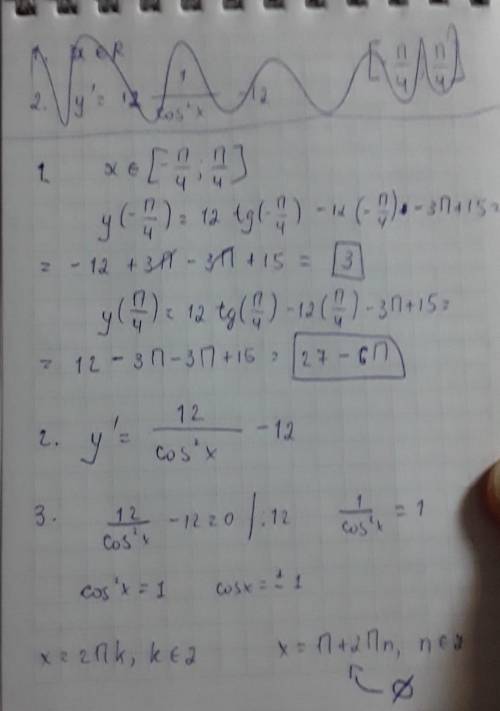 1. x ∈ R
2. y' = 12 1/cos²x - 12 [-П/4; П/4]
1. x ∈ [-П/4; П/4]
y(-П/4) = 12 tg(-П/4) - 12(-П/4) - 3П + 15 =
= -12 + 3П - 3П + 15 = 3
y(П/4) = 12 tg(П/4) - 12(П/4) - 3П + 15 =
= 12 - 3П - 3П + 15 = 27 - 6П
2. y' = 12/cos²x - 12
3. 12/cos²x - 12 = 0 | : 12 1/cos²x = 1
cos²x = 1 cosx = ± 1
x = 2Пk, k ∈ Z x = П + 2Пn, n ∈ Z
∅